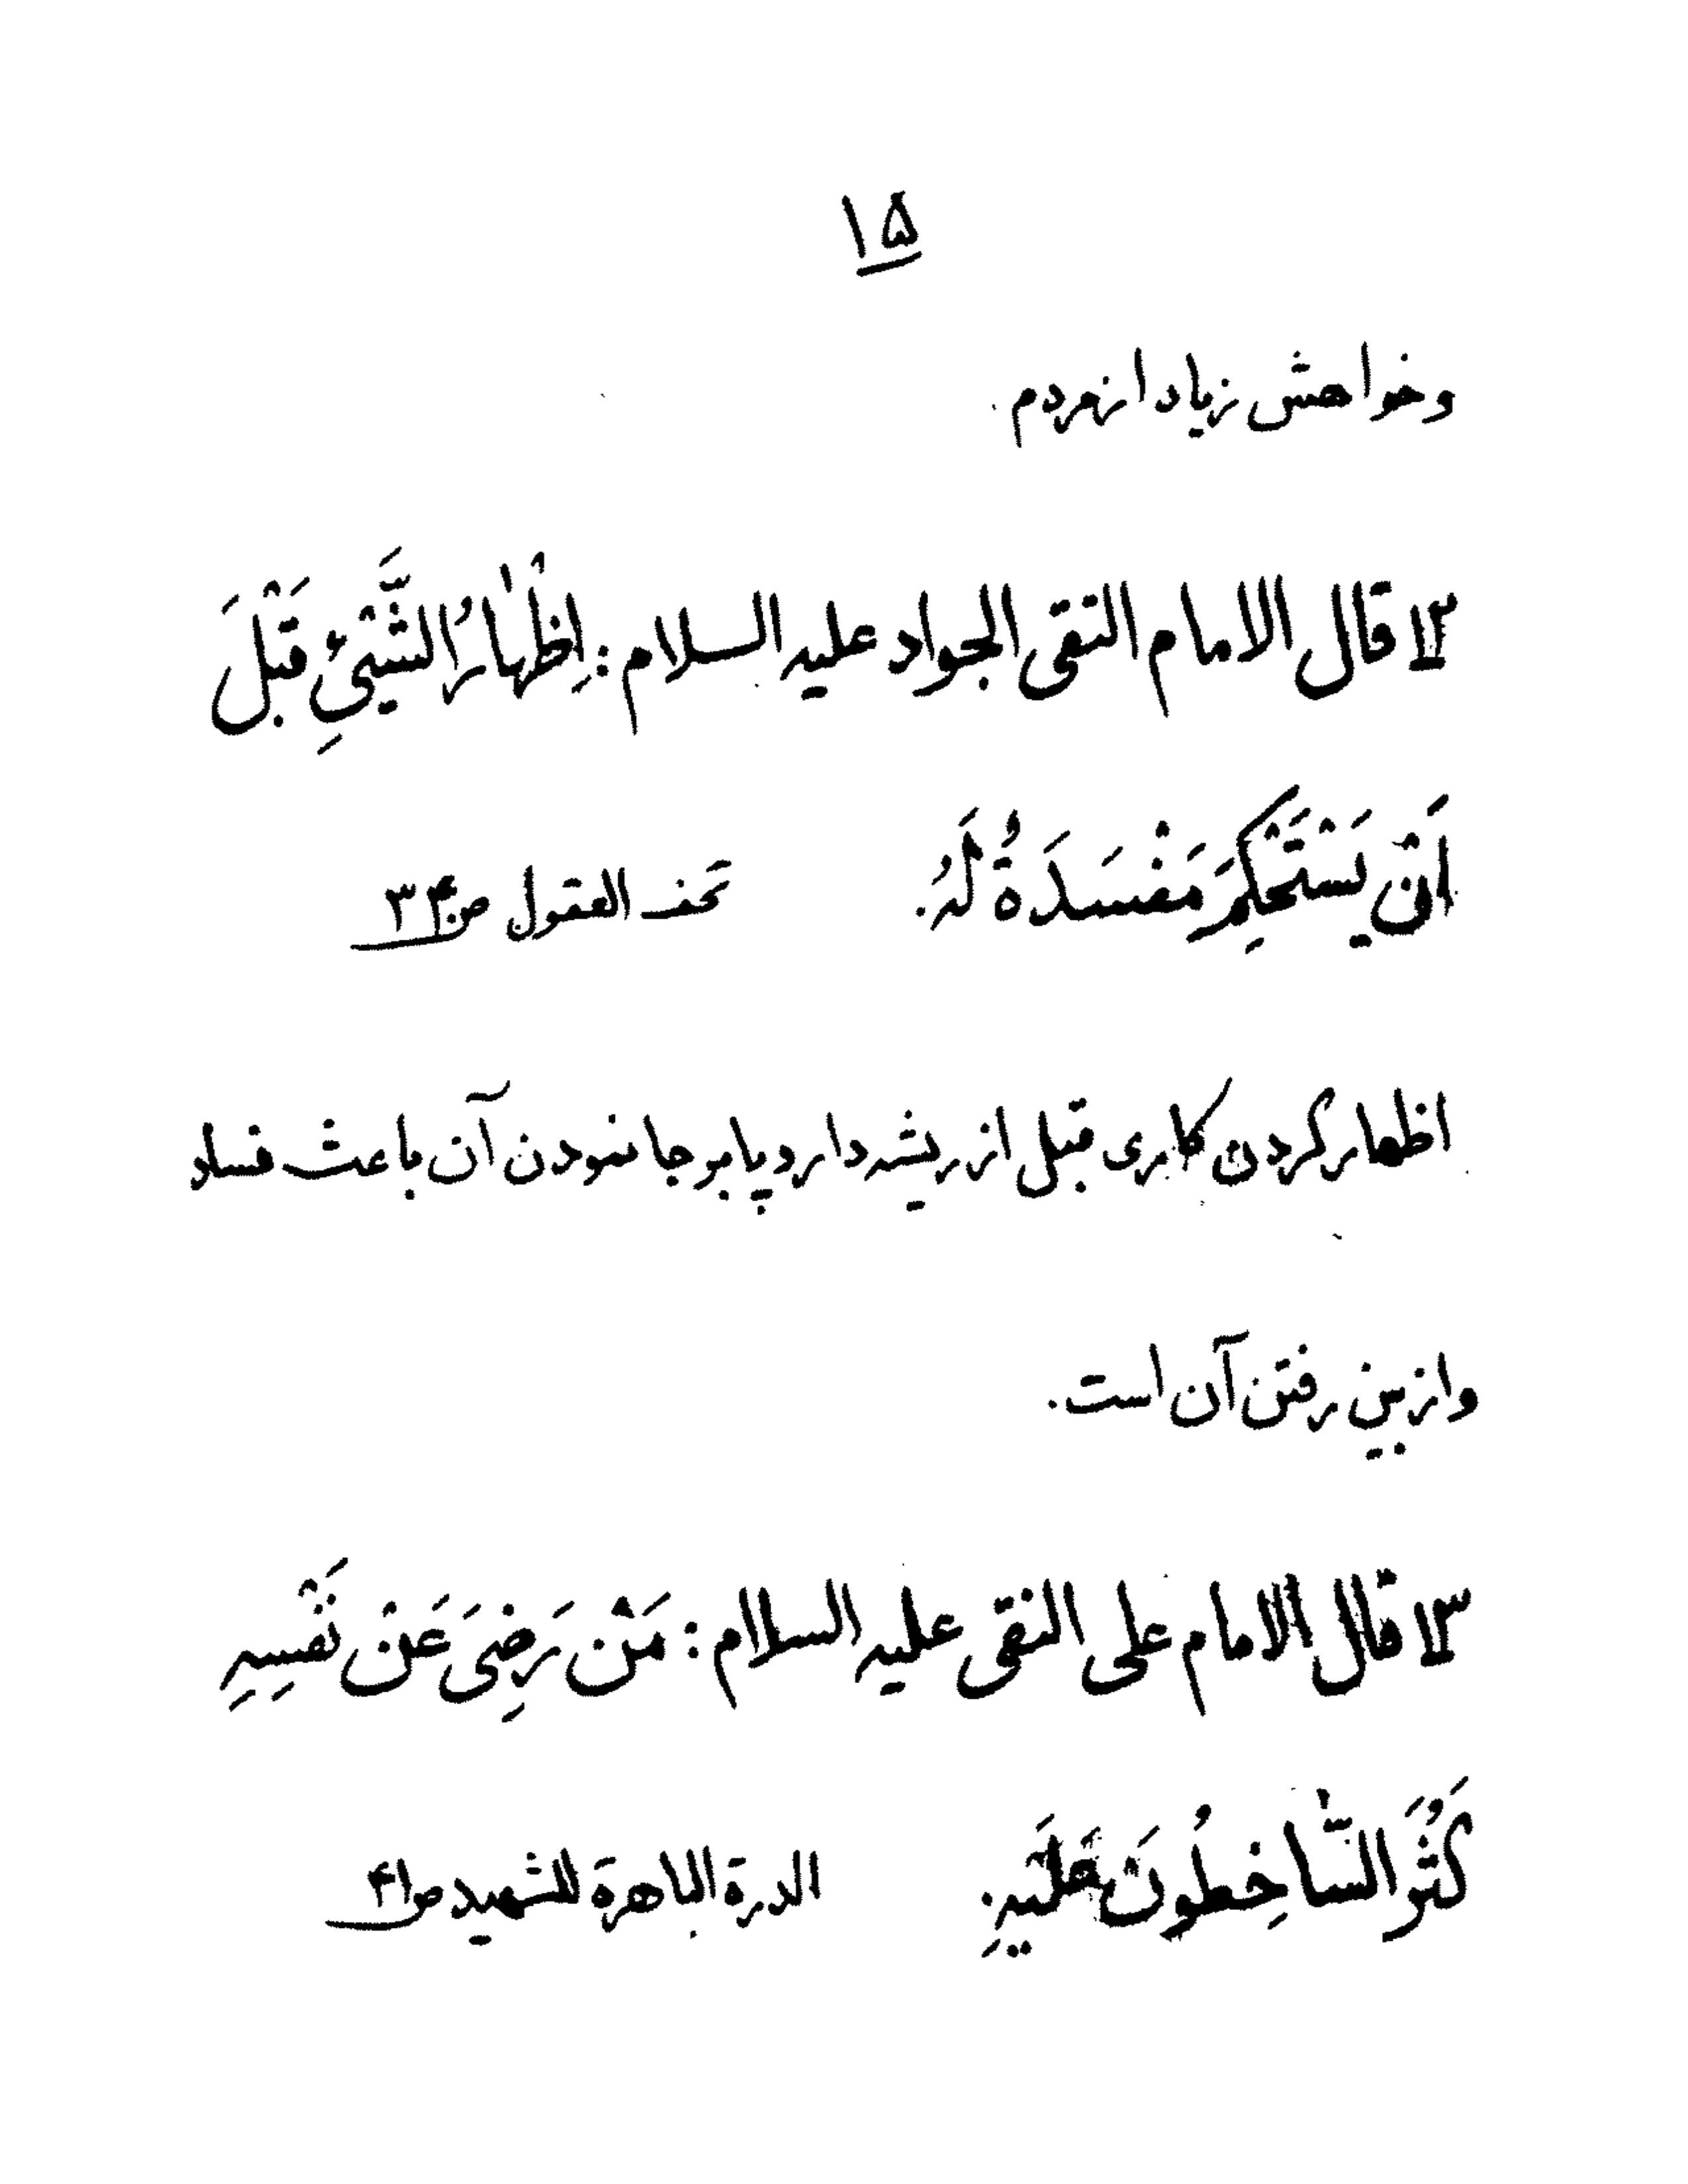 ۱۵
وخواهش زیاد از مردم.
۱۲ قال الامام التقی الجواد علیه السلام : اِظْهٰارُ الشَّیْیءِ قَبْلَ
اَنْ یَسْتَحْکِمَ مَفْسَدَةٌ لَهُ.  تحف العقول ص ۳۴۰
اظهار کردن کاری قبل از ریشه دار و پابرجا نمودن آن باعث فساد
و از بین رفتن آن است.
۱۳ قال الامام علی النقی علیه السلام : مَنْ رَضِیَ عَنْ نَفْسِهِ
کَثُرَ السّٰاخِطُونَ عَلَیْهِ.  الدرة الباهرة للشهید ص ۴۱